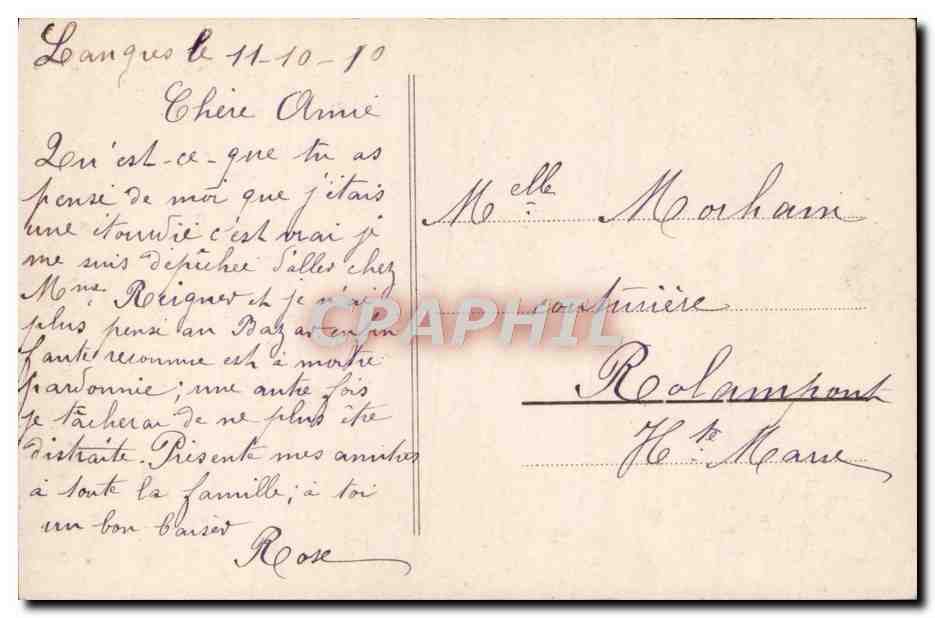 Langres le 11-10-10
Chère Amie
Qu'est-ce-que tu as
pensé de moi que j'étais
une étourdie c'est vrai je
me suis dépêchée d'aller chez
Mme Reigner et je n'ai
plus pensé au Bazar enfin
faute reconnue est à moitié
pardonnée; une autre fois
je tâcherai de ne plus être
distraite. Présente mes amitiés
à toute la famille; à toi
un bon baiser
Rose
Melle Morhain
couturière
Rolampont
Hte Marne
CPAPHIL